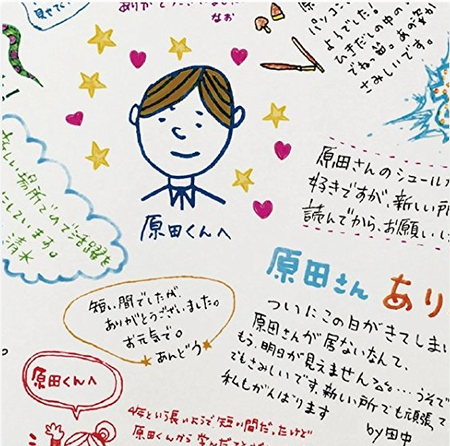 ありがとうござい
なお
パソコン
よんでた!
ひきだしの中の
でね。笛。
さみしいです。
新しい場所でのご活躍を
にしています。
清水
原田くんへ
原田さんのシュール
好きですが、新しい所
読んでから、お願いし
短い間でしたが、
ありがとうございました。
お元気で。
あんどう
原田さん あり
ついにこの日がきてしまい
原田さんが居ないなんて、
もう、明日が見えません。うそで
でもさみしいです。新しい所でも頑張て
私もがんばります
by田中
原田くんへ
4年という長いようで短い間だったけど
原田くんから学んだこと